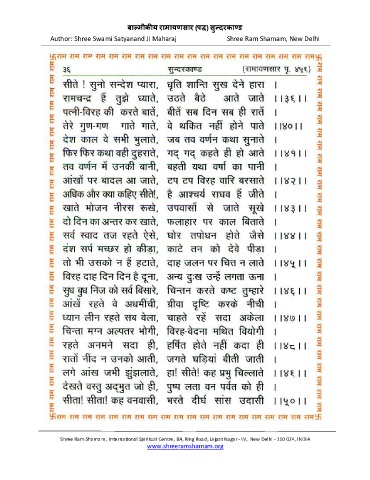 बाल्मीकीय रामायणसार (पद्य) सुन्दरकाण्ड
Author: Shree Swami Satyanand Ji Maharaj Shree Ram Sharnam, New Delhi
राम राम राम राम राम राम राम राम राम राम राम राम राम राम राम राम राम राम राम
३६ सुन्दरकाण्ड (रामायणसार पृ. ४५६)
सीते ! सुनो सन्देश प्यारा, धृति शान्ति सुख देने हारा ।
रामचन्द्र हैं तुझे ध्याते, उठते बैठे आते जाते ।।३६।।
पत्नी-विरह की करते बातें, बीतें सब दिन सब ही रातें ।
तेरे गुण-गण गाते गाते, वे थकित नहीं होने पाते ।।४०।।
देश काल वे सभी भुलाते, जब तव वर्णन कथा सुनाते ।
फिर फिर कथा वही दुहराते, गद् गद् कहते ही हो आते ।।४१।।
तव वर्णन में उनकी बानी, बहती यथा वर्षा का पानी ।
आंखों पर बादल आ जाते, टप टप विरह वारि बरसाते ।।४२।।
अधिक और क्या कहिए सीते!, है आश्चर्य राघव हैं जीते ।
खाते भोजन नीरस रूखे, उपवासों से जाते सूखे ।।४३।।
दो दिन का अन्तर कर खाते, फलाहार पर काल बिताते ।
सर्व स्वाद तज रहते ऐसे, घोर तपोधन होते जैसे ।।४४।।
दंश सर्प मच्छर हो कीड़ा, काटे तन को देवे पीड़ा ।
तो भी उसको न हैं हटाते, दाह जलन पर चित्त न लाते ।।४५।।
विरह दाह दिन दिन हे दूना, अन्य दुःख उन्हें लगता ऊना ।
सुध बुध निज को सर्व विसारे, चिन्तन करते कष्ट तुम्हारे ।।४६।।
आंखें रहते वे अधमींची, ग्रीवा दृष्टि करके नीची ।
ध्यान लीन रहते सब वेला, चाहते रहें सदा अकेला ।।४७।।
चिन्ता मग्न अल्पतर भोगी, विरह-वेदना मथित वियोगी ।
रहते अनमने सदा ही, हर्षित होते नहीं कदा ही ।।४८।।
रातों नींद न उनको आती, जगते घड़ियां बीती जाती ।
लगे आंख जभी झुंझलाते, हा! सीते! कह प्रभु चिल्लाते ।।४६।।
देखते वस्तु अद्‌भुत जो ही, पुष्प लता वन पर्वत को ही ।
सीता! सीता! कह वनवासी, भरते दीर्घ सांस उदासी ।।५०।।
राम राम राम राम राम राम राम राम राम राम राम राम राम राम राम राम राम राम राम
Shree Ram Sharnam, International Spiritual Centre, 8A, Ring Road, Lajpat Nagar - IV, New Delhi - 110 024, INDIA
www.shreeramsharnam.org